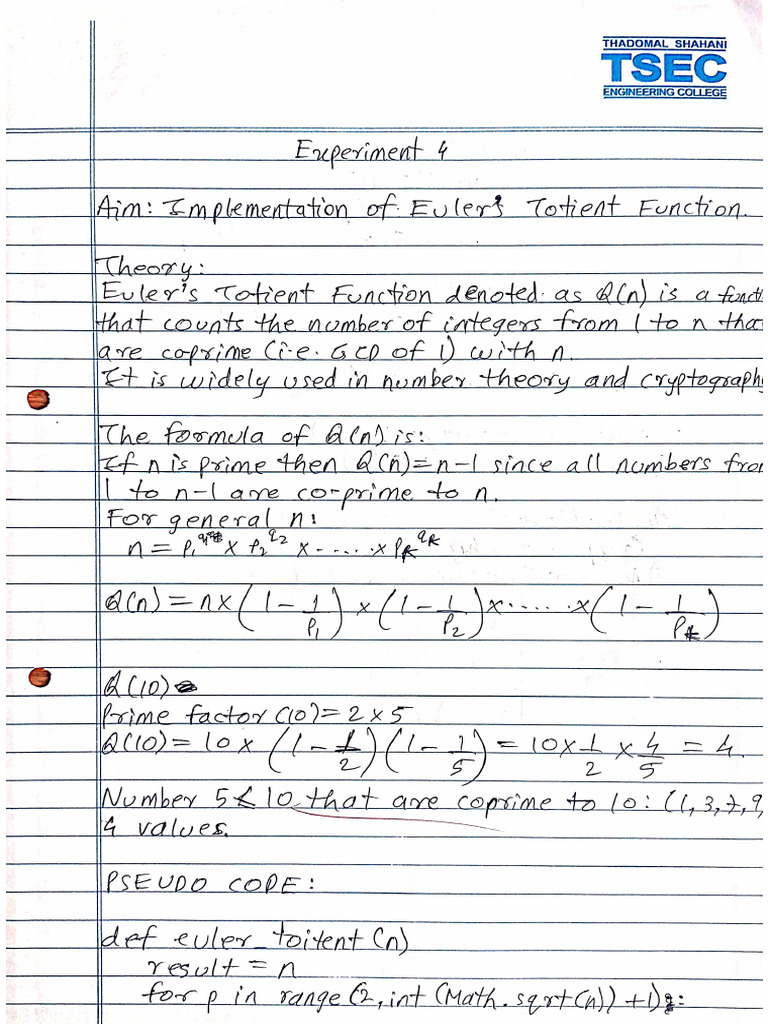 THADOMAL SHAHANI
TSEC
ENGINEERING COLLEGE
Experiment 4
Aim: Implementation of Euler's Totient Function.
Theory:
Euler's Totient Function denoted as Q(n) is a functi
that counts the number of integers from 1 to n that
are coprime (i.e. GCD of 1) with n.
It is widely used in number theory and cryptography
The formula of Q(n) is:
If n is prime then Q(n) = n-1 since all numbers from
1 to n-1 are co-prime to n.
For general n:
n = p₁^q₁ × p₂^q₂ × ...... × pₖ^qₖ
Q(n) = n × (1 - 1/p₁) × (1 - 1/p₂) × ...... × (1 - 1/pₖ)
Q(10)
Prime factor (10) = 2 × 5
Q(10) = 10 × (1 - 1/2) (1 - 1/5) = 10 × 1/2 × 4/5 = 4
Number 5 < 10 that are coprime to 10: (1, 3, 7, 9,
4 values.
PSEUDO CODE:
def euler_toitent (n)
result = n
for p in range (2, int (Math.sqrt(n)) + 1):